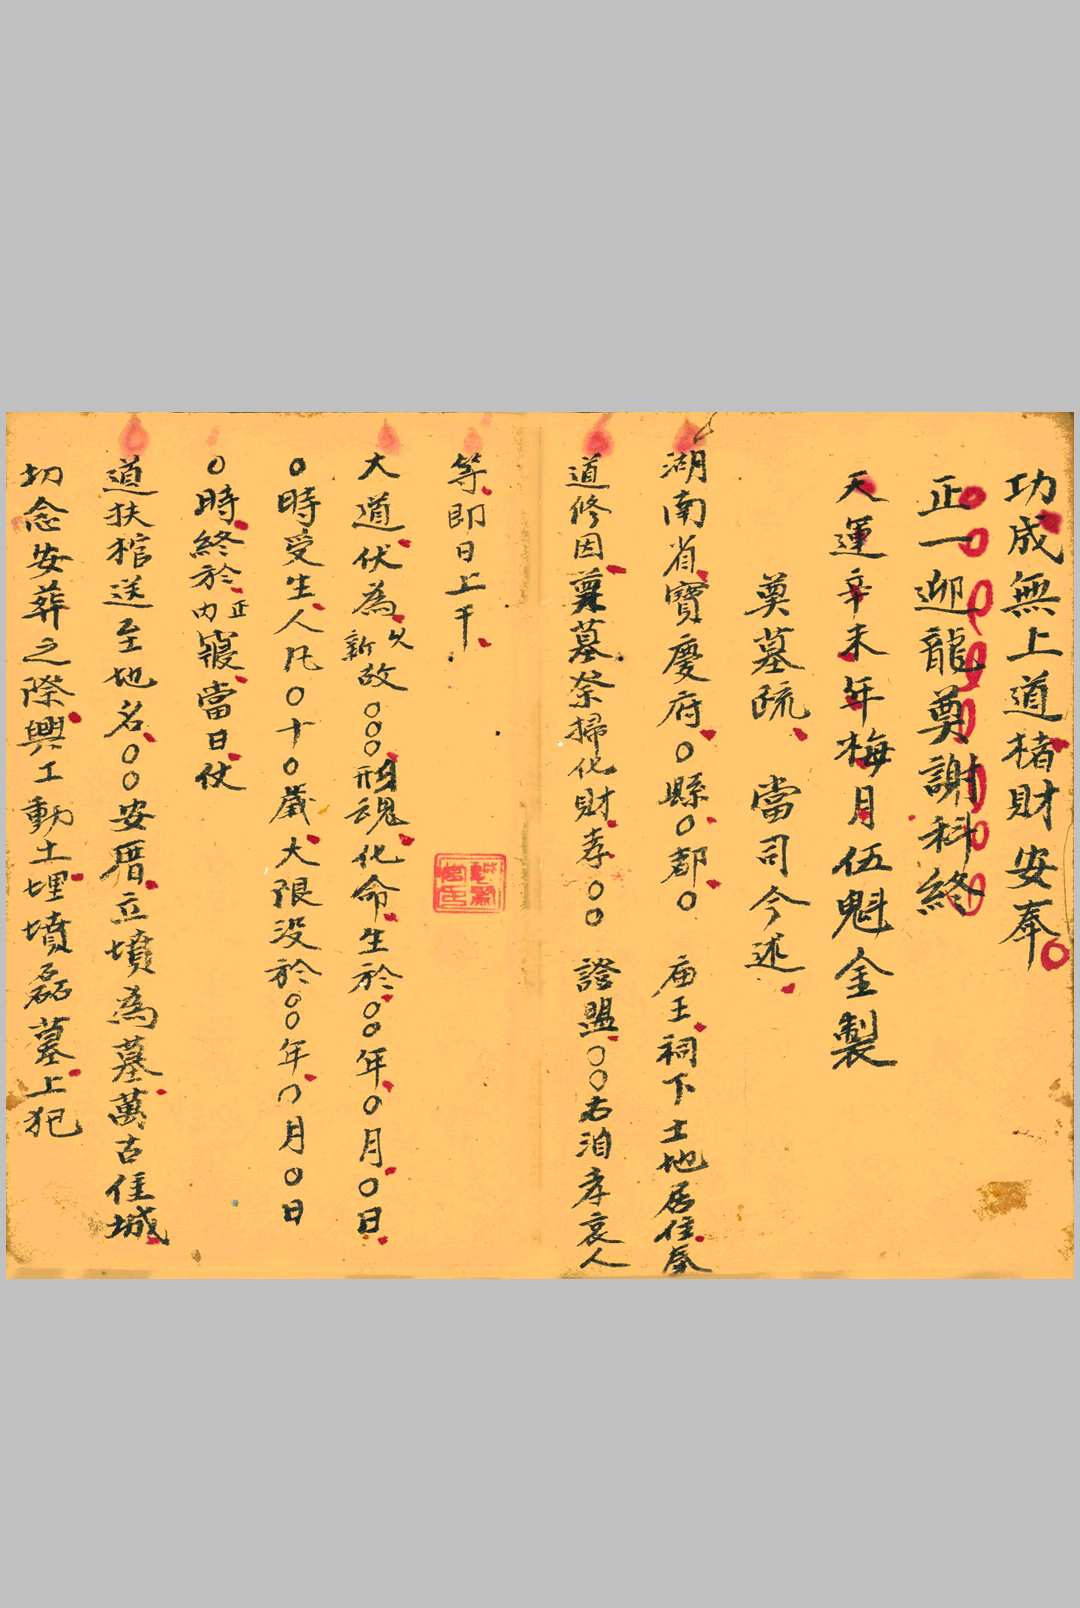 功成無上道楮財安奉
正一迎龍奠謝科終
天運辛未年梅月伍魁金製
奠墓疏 當司今述
湖南省寶慶府〇縣〇都〇 庙王祠下土地居住奉
道修因奠墓祭掃化財孝〇〇 證盟〇〇右洎孝哀人
等即日上干
大道伏為新久故〇〇〇形魂化命生於〇〇年〇月〇日
〇時受生人凡〇十〇歲大限没於〇〇年〇月〇日
〇時終於内正寢當日仗
道扶棺送至地名〇〇安厝立墳為墓萬古住城
切念安葬之際興工動土埋墳磊墓上犯